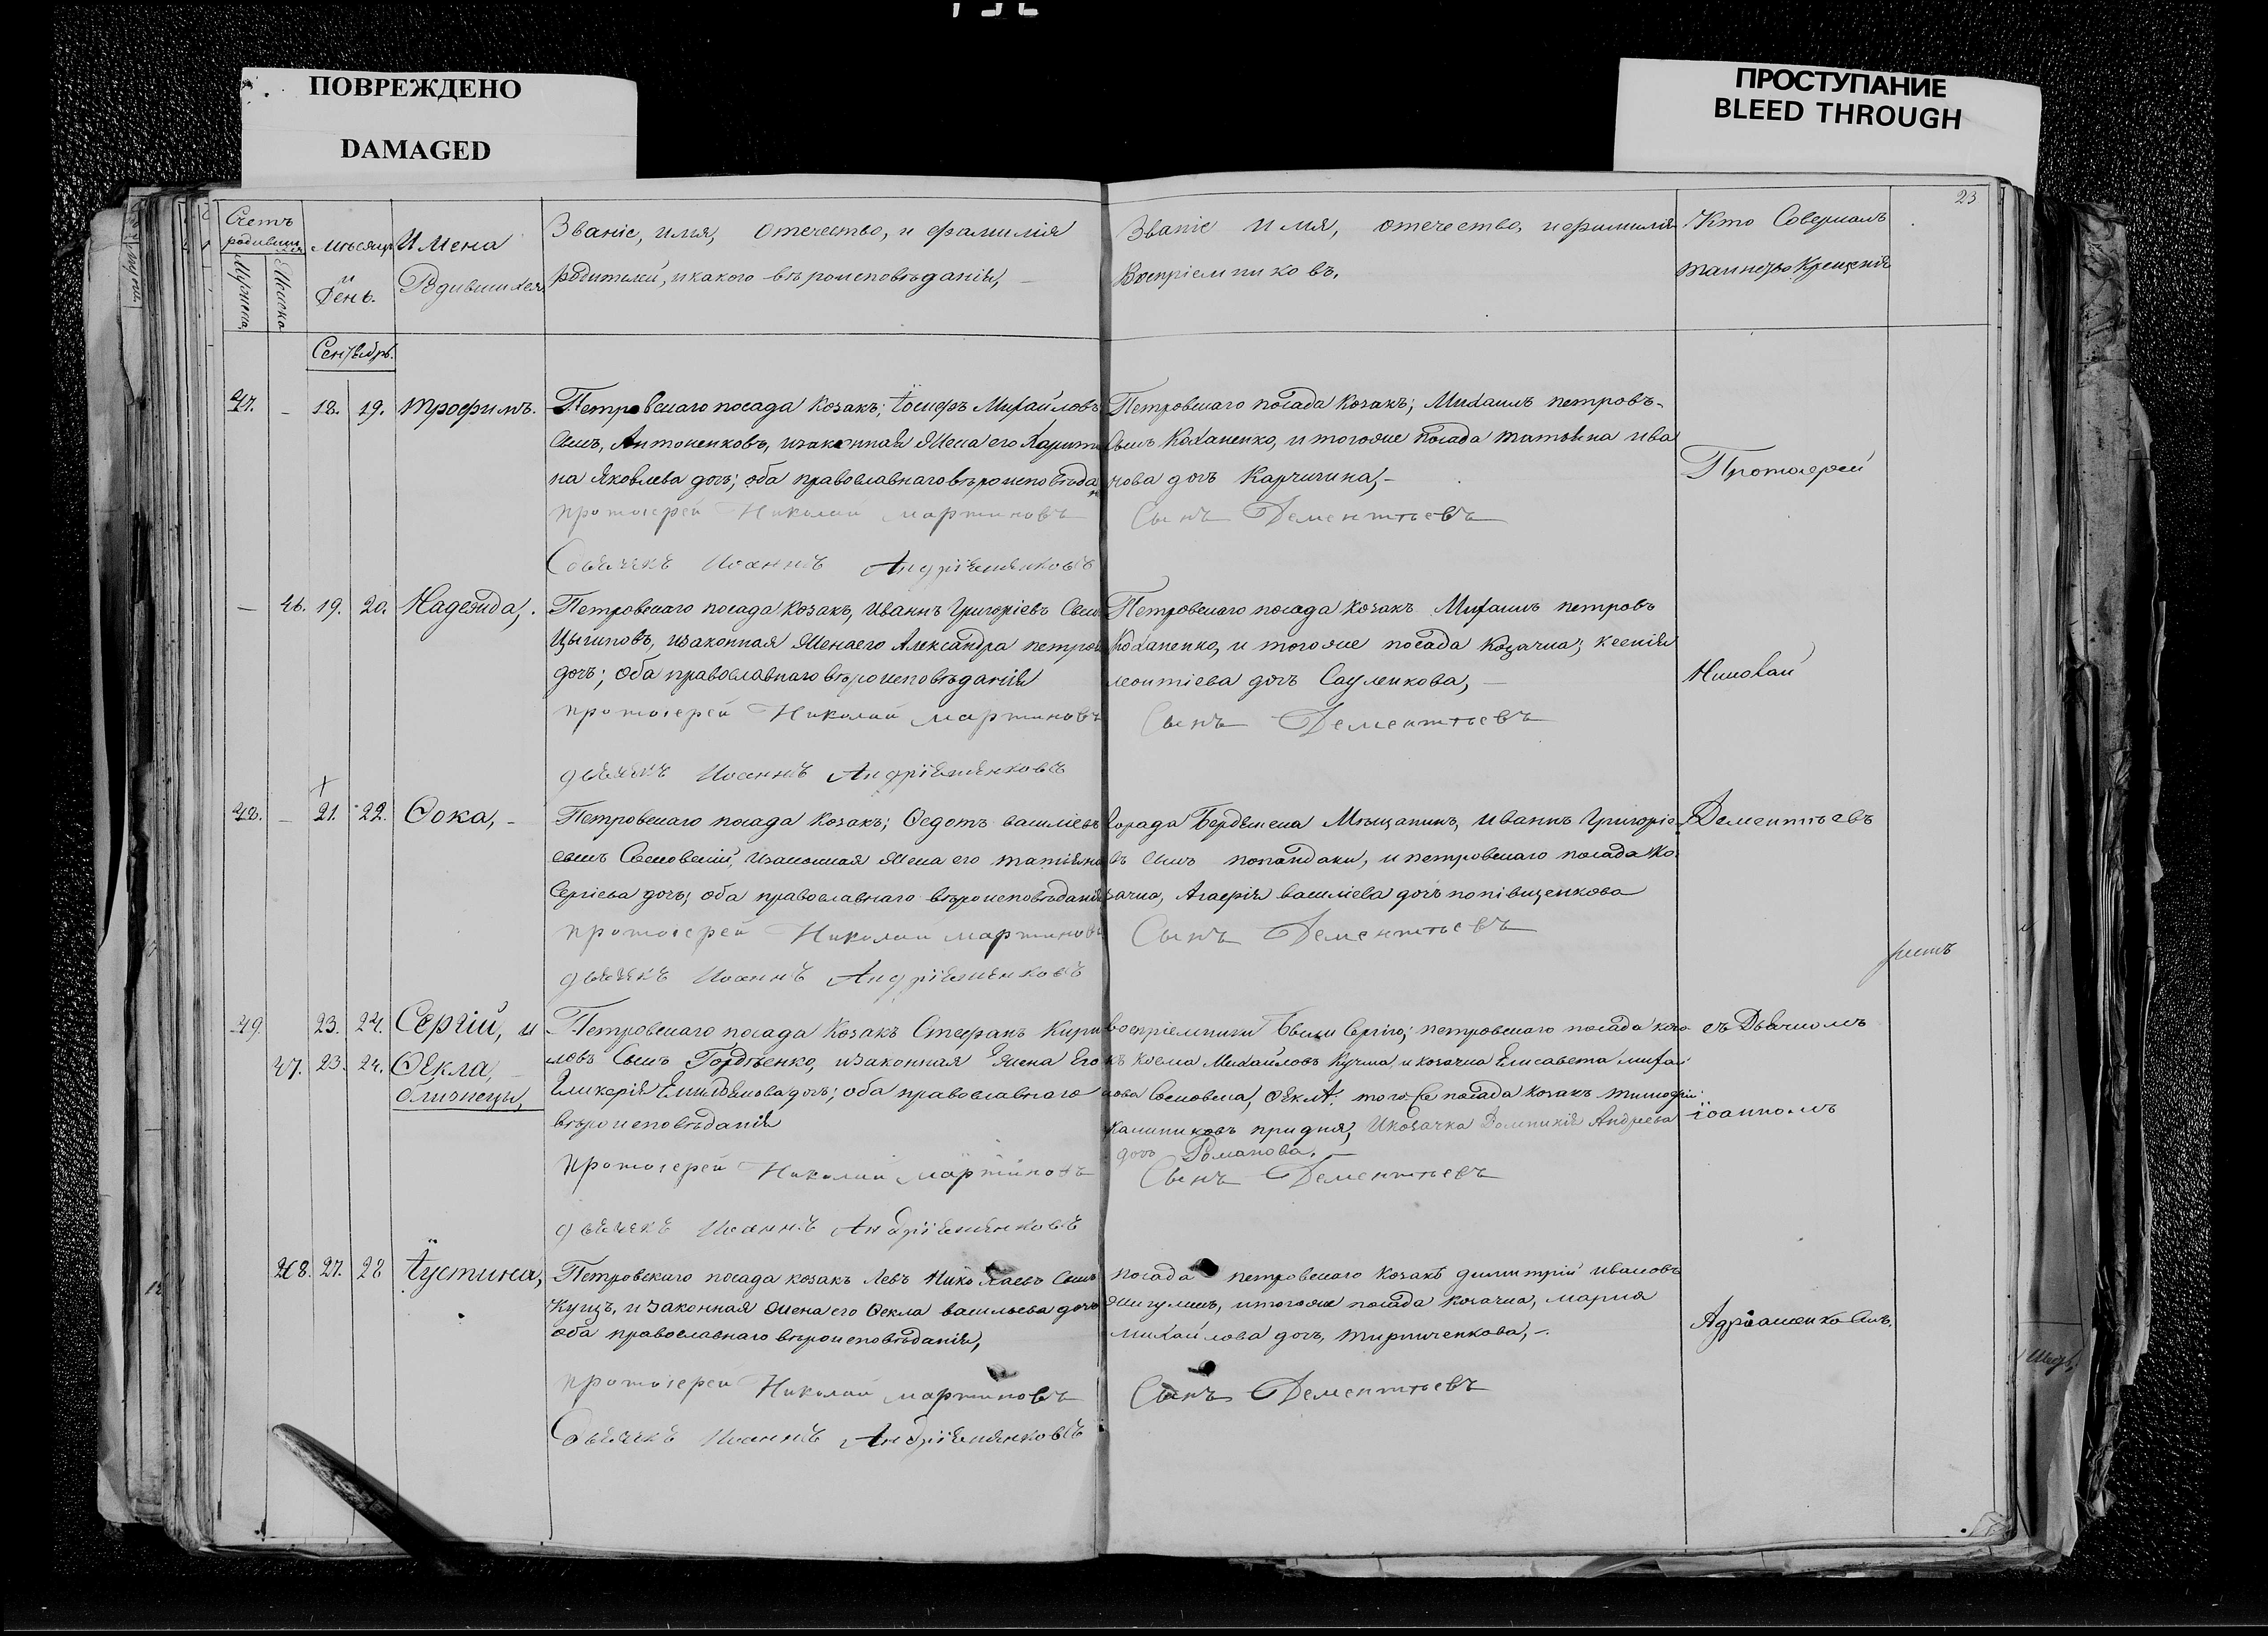 ПОВРЕЖДЕНО
DAMAGED
ПРОСТУПАНИЕ
BLEED THROUGH
23
Счетъ родившихся
Мужеска
Женска
мѣсяцъ и День.
Имена Родившихся
Званіе, имя, отечество, и фамилія
родителей, и какого вѣроисповѣданія,
Званіе имя, отечество, и фамилія
Воспріемниковъ.
Кто Совершалъ
таинство Крещенія
Сентябрь.
47. – 18. 19. Трофимъ.
Петровскаго посада Козакъ, Іосифъ Михайловъ
Сынъ, Антоненковъ, изаконная Жена его Харити
на Яковлева дочь; оба православнаго вѣроисповѣдан
протоіерей Николай Мартиновъ
Дьячекъ Иоаннъ Андріяшенковъ
Петровскаго посада Козакъ; Михаилъ петровъ
Сынъ Коханенко, и тогоже посада татьяна ива
нова дочь Карчигина,
Сынъ Дементьевъ
Протоіерей
– 46. 19. 20. Надежда,
Петровскаго посада Козакъ, Иванъ Григоріевъ Сынъ
Цыгиповъ, изаконная Жена его Александра петрова
дочь; оба православнаго вѣроисповѣданія
протоіерей Николай Мартиновъ
дьячекъ Иоаннъ Андріяшенковъ
Петровскаго посада козакъ Михаилъ петровъ
Коханенко, и тогоже посада Козачка; ксенія
леонтіева дочь Сауленкова,
Сынъ Дементьевъ
Николай
48. – 21. 22. Ѳока,
Петровскаго посада Козакъ; Ѳедотъ василіевъ
сынъ Сосновскій, изаконная Жена его татіяна
Сергіева дочь; оба православнаго вѣроисповѣданія
протоіерей Николай Мартиновъ
дьячекъ Иоаннъ Андріяшенковъ
города Бердянска Мѣщанинъ, Иванъ Григоріе
въ сынъ попандаки, и петровскаго посада Ко
зачка, Агафія василіева дочь попівщенкова
Сынъ Дементьевъ
Дементьевъ
49. 23. 24. Сергій, и
47. 23. 24. Ѳекла,
близнецы,
Петровскаго посада Козакъ Стефанъ Кири
ловъ Сынъ Гордѣенко, изаконная Жена Его
Гликерія дочь; оба православнаго
вѣроисповѣданія
Протоіерей Николай Мартиновъ
дьячекъ Иоаннъ Андріяшенковъ
воспріемники были Сергію; петровскаго посада коза
къ Косма Михайловъ Кучма, и козачка Елисавета михай
лова Сосновска, Ѳеклѣ, тогоже посада козакъ тимофій
Калиниковъ придня, Икозачка Домникія Андреева
дочь Романова.
Сынъ Дементьевъ
съ Дьячкомъ
іоанномъ
48. 27. 28 Іустина,
Петровскаго посада козакъ Левъ Николаевъ Сынъ
Куцъ, и законная жена его Ѳекла васильева дочь
оба православнаго вѣроисповѣданія,
протоіерей Николай Мартиновъ
Дьячекъ Иоаннъ Андріяшенковъ
посада петровскаго Козакъ димитрій ивановъ
и тогоже посада козачка, мария
михайлова дочь,
Сынъ Дементьевъ